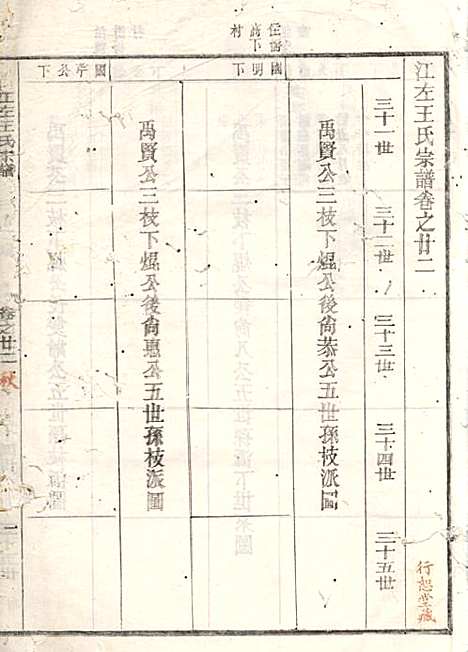 江左王氏宗譜卷之廿二
行恕堂藏
三十一世
三十二世
三十三世
三十四世
三十五世
禹賢公三枝下焜公後尚恭公五世孫枝派圖
國明下
村
禹賢公三枝下焜公後尚惠公五世孫枝派圖
國學公下
江左王氏宗譜
卷之廿二
秋
一